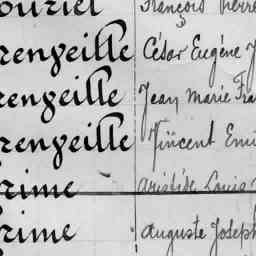 ouriel François Pierre
renzeille César Eugène J
renzeille Jean Marie Fra
renzeille Vincent Emi
rime Aristide Louis
rime Auguste Joseph